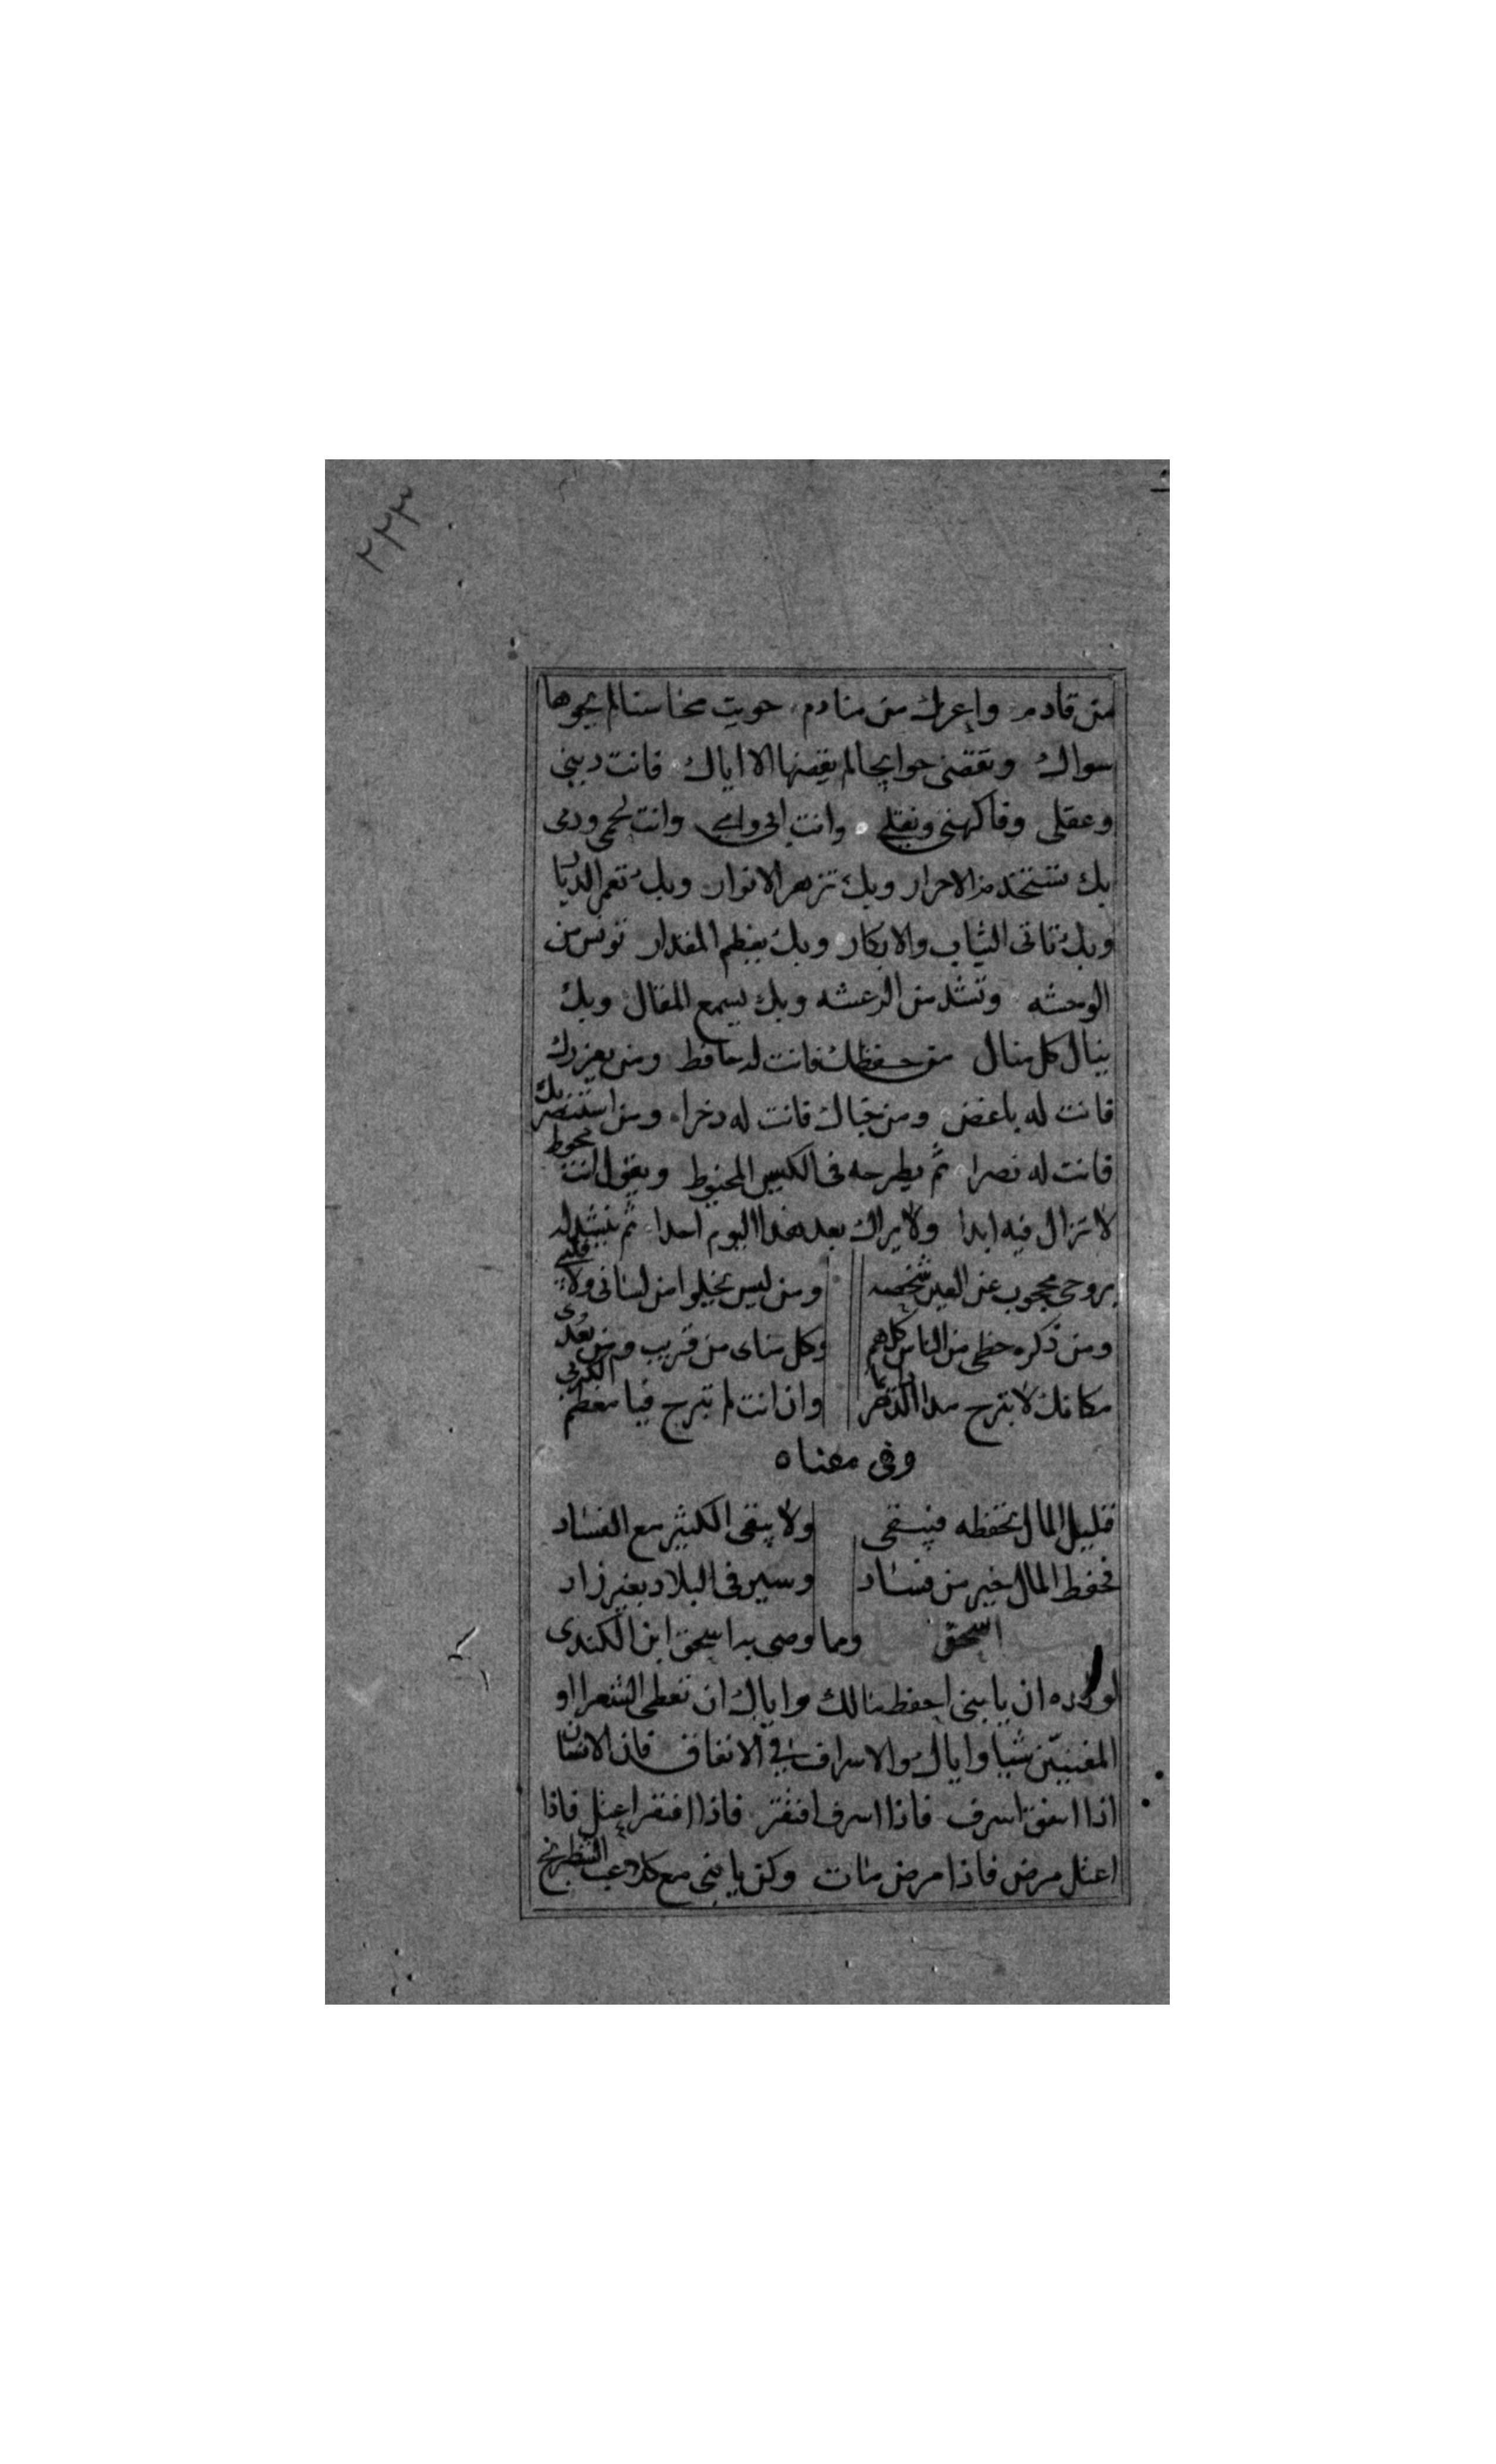 ٢٢٣
من قادم واعزك من منادم حويت محاسنا لم يحوها
سواك وتقضى حوايجا لم يقضها الا اياك فانت دينى
وعقلى وفاكهنى ونقلى وانت ابى وامى وانت لحمى ودمى
بك تستخدم الاحرار وبك تزهر الانوار وبك تعمر الديار
وبك تاتى الثياب والابكار وبك يعظم المقدار تونس من
الوحشه وتشد من الرعشه وبك يسمع المقال وبك
ينال كل منال من حفظك فانت له حافظ ومن يعزرك
فانت له باغض ومن خباك فانت له دخرا ومن استنصر بك
فانت له نصرا ثم يطرحه فى الكيس المخيوط ويقول انت محوط
لا تزال فيه ابدا ولا يراك بعد هذا اليوم احدا ثم ينشد له
بروحى محجوب عن العين شخصه ومن ليس يخلوا من لسانى ولا قلبى
ومن ذكره حظى من الناس كلهم وكل مناى من قريب ومن بعدى
مكانك لا تبرح مدا الدهر دايما وان انت لم تبرح فيا معظم الكربى
وفى معناه
قليل المال تحفظه فيبقى ولا يبقى الكثير مع الفساد
فحفظ المال خير من فساد وسير فى البلاد بغير زاد
اسحق ومما وصى به اسحق ابن الكندى
لولده ان يا بنى احفظ مالك واياك ان تعطى الشعرا او
المغنيّن شيا واياك والاسراف فى الانفاق فان الانسان
اذا انفق اسرف فاذا اسرف افتقر فاذا افتقر اعتل فاذا
اعتل مرض فاذا مرض مات وكن يا بنى مع كلاعب الشطرنج